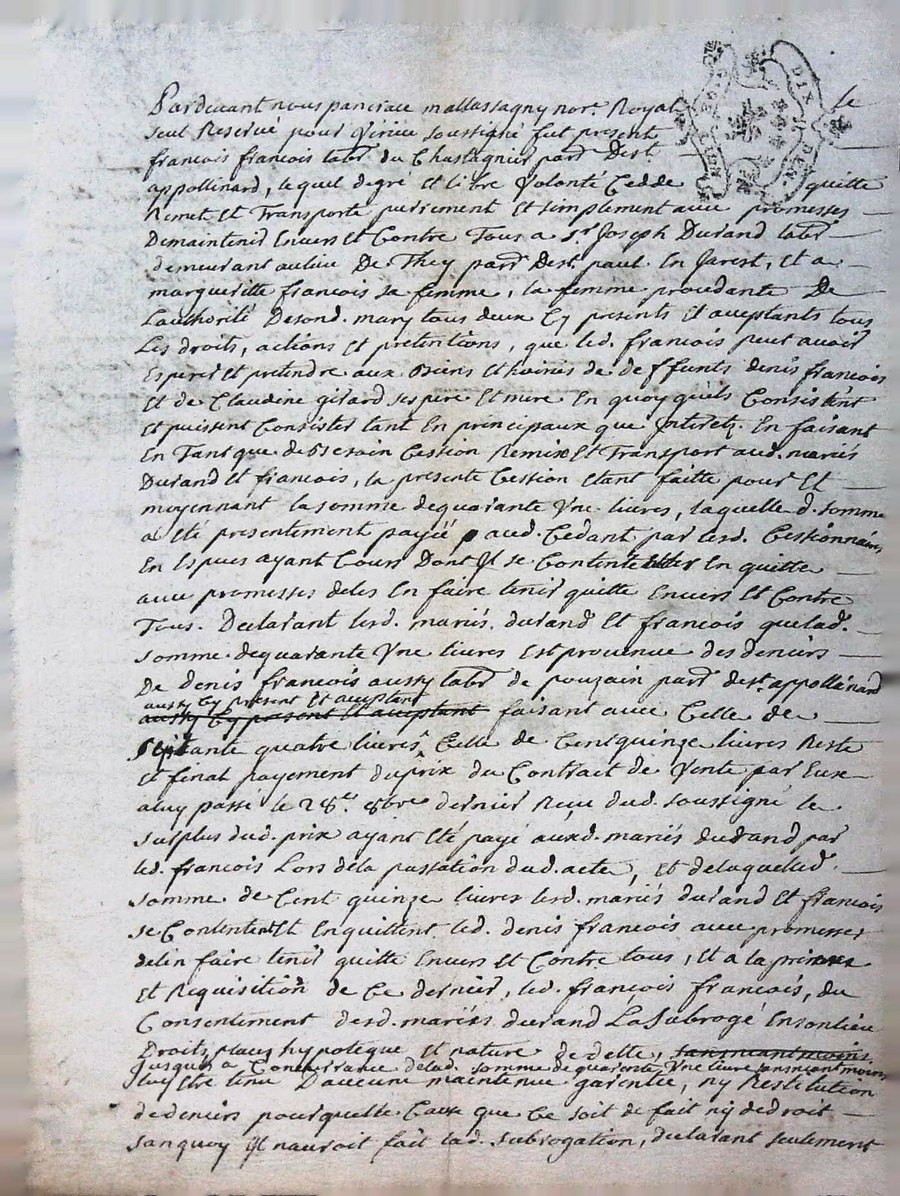 Pardevant nous pancrace mallassagny nore. Royal le
seul Reservé pour Virieu soussigné fut present
francois francois labr. du Chastagnier parr. Dest.
appollinard, lequel degré et libre Volonté Cedde quitte
Remet et Transporte purement Et simplement avec promesses
Demaintenir Envers Et Contre Tous a Sr. Joseph Durand labr.
demeurant aulieu De They parr. Dest. paul En Jarest, Et a
margueritte francois sa femme, la femme procedante De
Lauthorité Desond. mary tous deux Cy presents et acceptants tous
Les droits, actions Et pretentions, que led. francois peut avoir
Esperer Et pretendre aux Biens Et hoiries de deffunts denis francois
Et de Claudine girard ses pere Et mere En quoy quils Consistent
Et puissent Consister tant En principaux que Interetz. En faisant
En Tant que de Besoin Cession Remise Et Transport aud. mariés
Durand Et francois, la presente Cession Etant faitte pour Et
moyennant la somme dequarante Vne livres, laquelle d. somme
a Eté presentement payée aud. Cedant par lesd. Cessionnaires
En Especes ayant Cours Dont Il se Contente En quitte
avec promesses deles En faire tenir quitte Envers Et Contre
Tous. Declarant lesd. mariés durand Et francois quelad.
somme dequarante Vne livres Est provenue des deniers
De denis francois aussy labr. de pouzain parr. dest. appollinard
aussy Cy present Et acceptant
aussy Cy present Et acceptant faisant avec Celle de
Septante quatre livres Celle de Cent quinze livres Reste
Et final payement du prix du Contract de Vente par Eux
aluy passé le 28e. 8bre dernier Reçu dud. soussigné le
surplus dud. prix ayant Eté payé auxd. mariés durand par
led. francois Lors dela passation dud. acte, Et delaquelled.
somme de Cent quinze livres lesd. mariés durand Et francois
se Contentent Et Enquittent led. denis francois avec promesses
delen faire tenir quitte Envers Et Contre tous, Et a la
Et Requisition de Ce dernier, led. françois françois, du
Consentement desd. mariés durand La Subrogé Ensonlieu
Droits, place hypoteque Et nature de dette, sansneant moins
Jusques a Concurrance delad. somme de quarente Vne livre sansneant moins
luy Etre tenu Daucune maintenue garentie, ny Restitution
dedeniers pourquelle Cause que Ce soit de fait ny dedroit
sanquoy Il nauroit fait lad. subrogation, declarant seulement